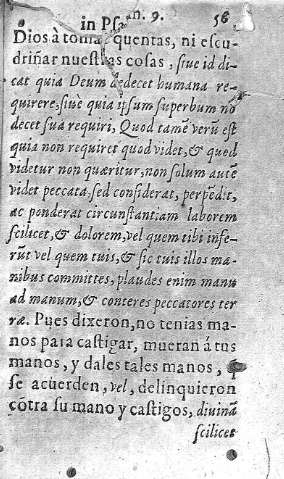 in Psan. 9. 56
Dios à toma quentas, ni escu-
driñar nuestras cosas, siue id di-
cat quia Deum dedecet humana re-
quirere, siuè quia ipsum superbum no
decet sua requiri, Quod tamē verū est
quia non requiret quod videt, & quod
videtur non quæritur, non solum autē
videt peccata, sed considerat, perpēdit,
ac ponderat circunstantiam laborem
scilicet, & dolorem, vel quem tibi infe-
rūt vel quem tuis, & sic tuis illos ma-
nibus committes, plaudes enim manu
ad manum, & conteres peccatores ter
ræ. Pues dixeron, no tenias ma-
nos para castigar, mueran á tus
manos, y dales tales manos, q̃
se acuerden, vel, delinquieron
cōtra su mano y castigos, diuinā
scilicet